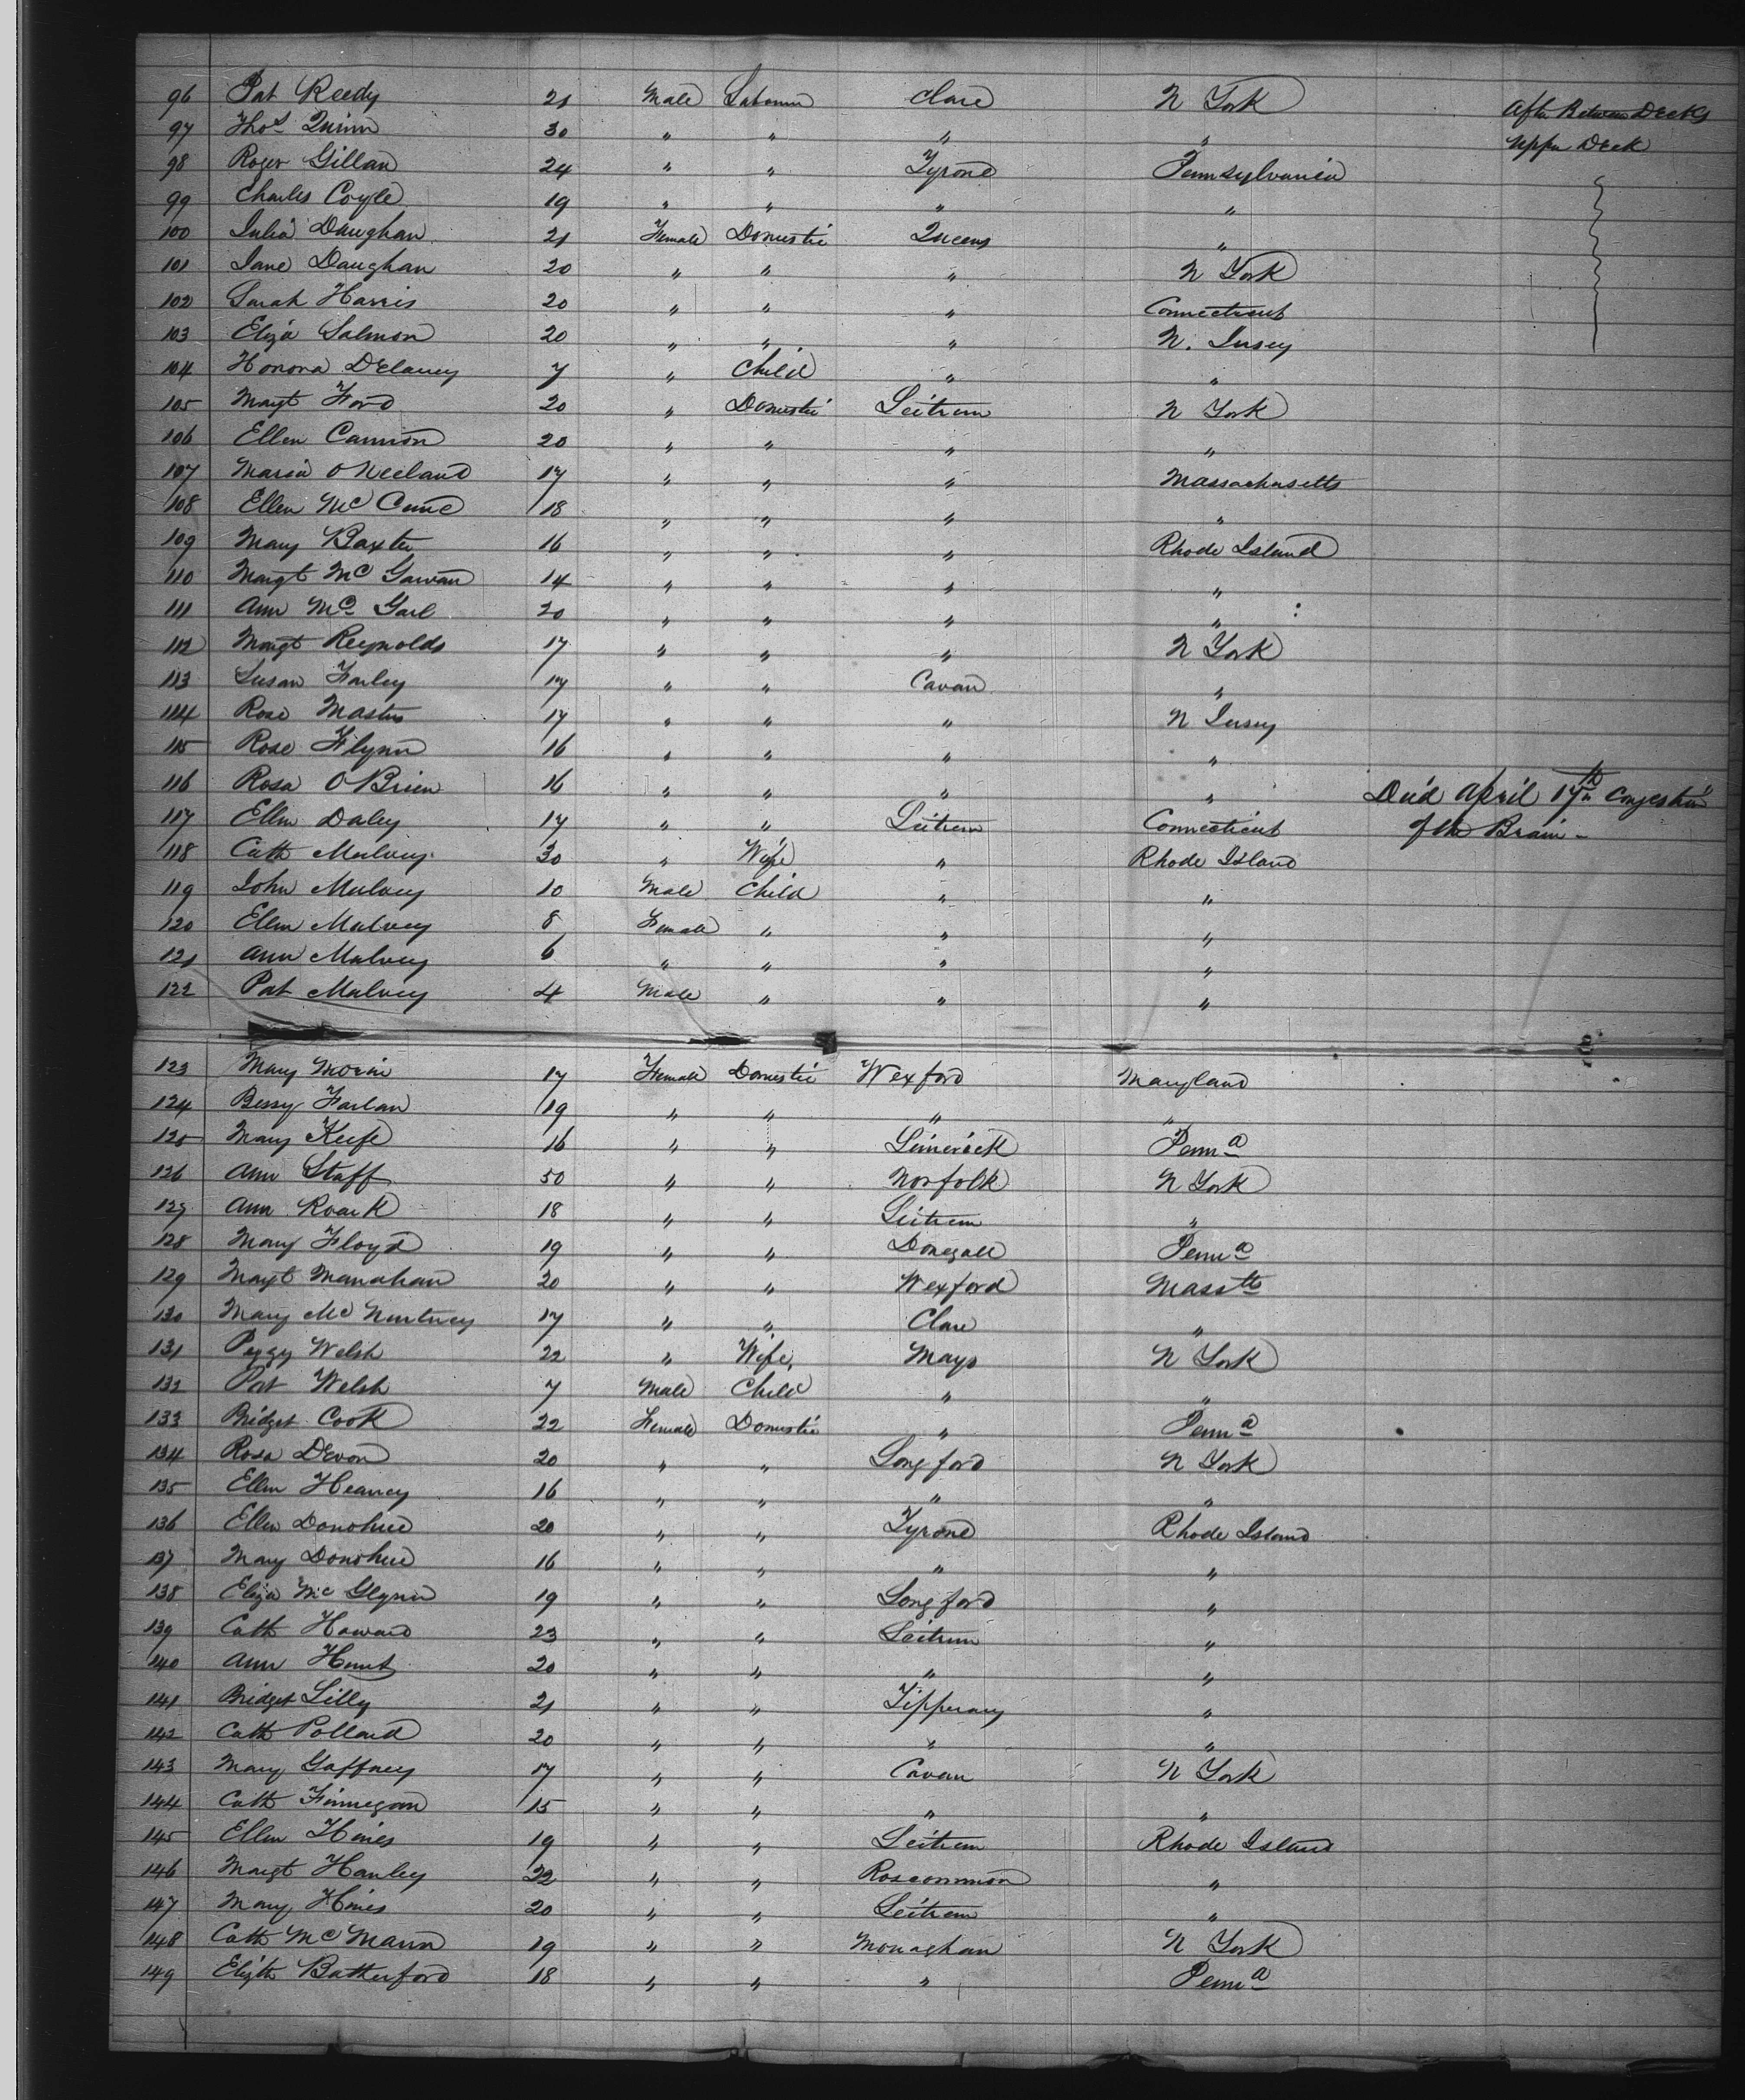 96 Pat Reedy 21 Male Laborer Clare N York After Between Decks
97 Thos Quinn 30 " " " " Upper Deck
98 Roger Gillan 24 " " Tyrone Pennsylvania
99 Charles Coyle 19 " " " "
100 Julia Daughan 21 Female Domestic Queens "
101 Jane Daughan 20 " " " N York
102 Sarah Harris 20 " " " Connecticut
103 Eliza Salmon 20 " " " N. Jersey
104 Honora Delaney 7 " Child " "
105 Magt Ford 20 " Domestic Leitrim N York
106 Ellen Cannon 20 " " " "
107 Maria O Neeland 17 " " " Massachusetts
108 Ellen Mc Cune 18 " " " "
109 Mary Baxter 16 " " " Rhode Island
110 Margt Mc Gowan 14 " " " "
111 Ann Mc Garl 20 " " " "
112 Margt Reynolds 17 " " " N York
113 Susan Farley 17 " " Cavan "
114 Rose Masters 17 " " " N Jersey
115 Rose Flynn 16 " " " "
116 Rosa O Brien 16 " " " " Died April 17th Congestion
117 Ellen Daley 17 " " Leitrim Connecticut of the Brain -
118 Cath Mulvey 30 " Wife " Rhode Island
119 John Mulvey 10 Male Child " "
120 Ellen Mulvey 8 Female " " "
121 Ann Mulvey 6 " " " "
122 Pat Mulvey 4 Male " " "
123 Mary Morin 17 Female Domestic Wexford Maryland
124 Bessy Farlan 19 " " " "
125 Mary Keefe 16 " " Limerick Penna
126 Ann Staff 50 " " Norfolk N York
127 Ann Roark 18 " " Leitrim "
128 Mary Floyd 19 " " Donegall Penna
129 Magt Manahan 20 " " Wexford Masstts
130 Mary Mc Nurtney 17 " " Clare "
131 Peggy Welsh 22 " Wife Mayo N York
132 Pat Welsh 7 Male Child " "
133 Bridget Cook 22 Female Domestic " Penna
134 Rosa Devon 20 " " Longford N York
135 Ellen Heaney 16 " " " "
136 Ellen Donohue 20 " " Tyrone Rhode Island
137 Mary Donohue 16 " " " "
138 Eliza Mc Glynn 19 " " Longford "
139 Cath Howard 23 " " Leitrim "
140 Ann Hunt 20 " " " "
141 Bridget Lilly 21 " " Tipperary "
142 Cath Pollard 20 " " " "
143 Mary Gaffney 17 " " Cavan N York
144 Cath Finnegan 15 " " " "
145 Ellen Hines 19 " " Leitrim Rhode Island
146 Margt Hanley 22 " " Roscommon "
147 Mary Hines 20 " " Leitrim "
148 Cath Mc Mann 19 " " Monaghan N York
149 Elizth Batterford 18 " " " Penna